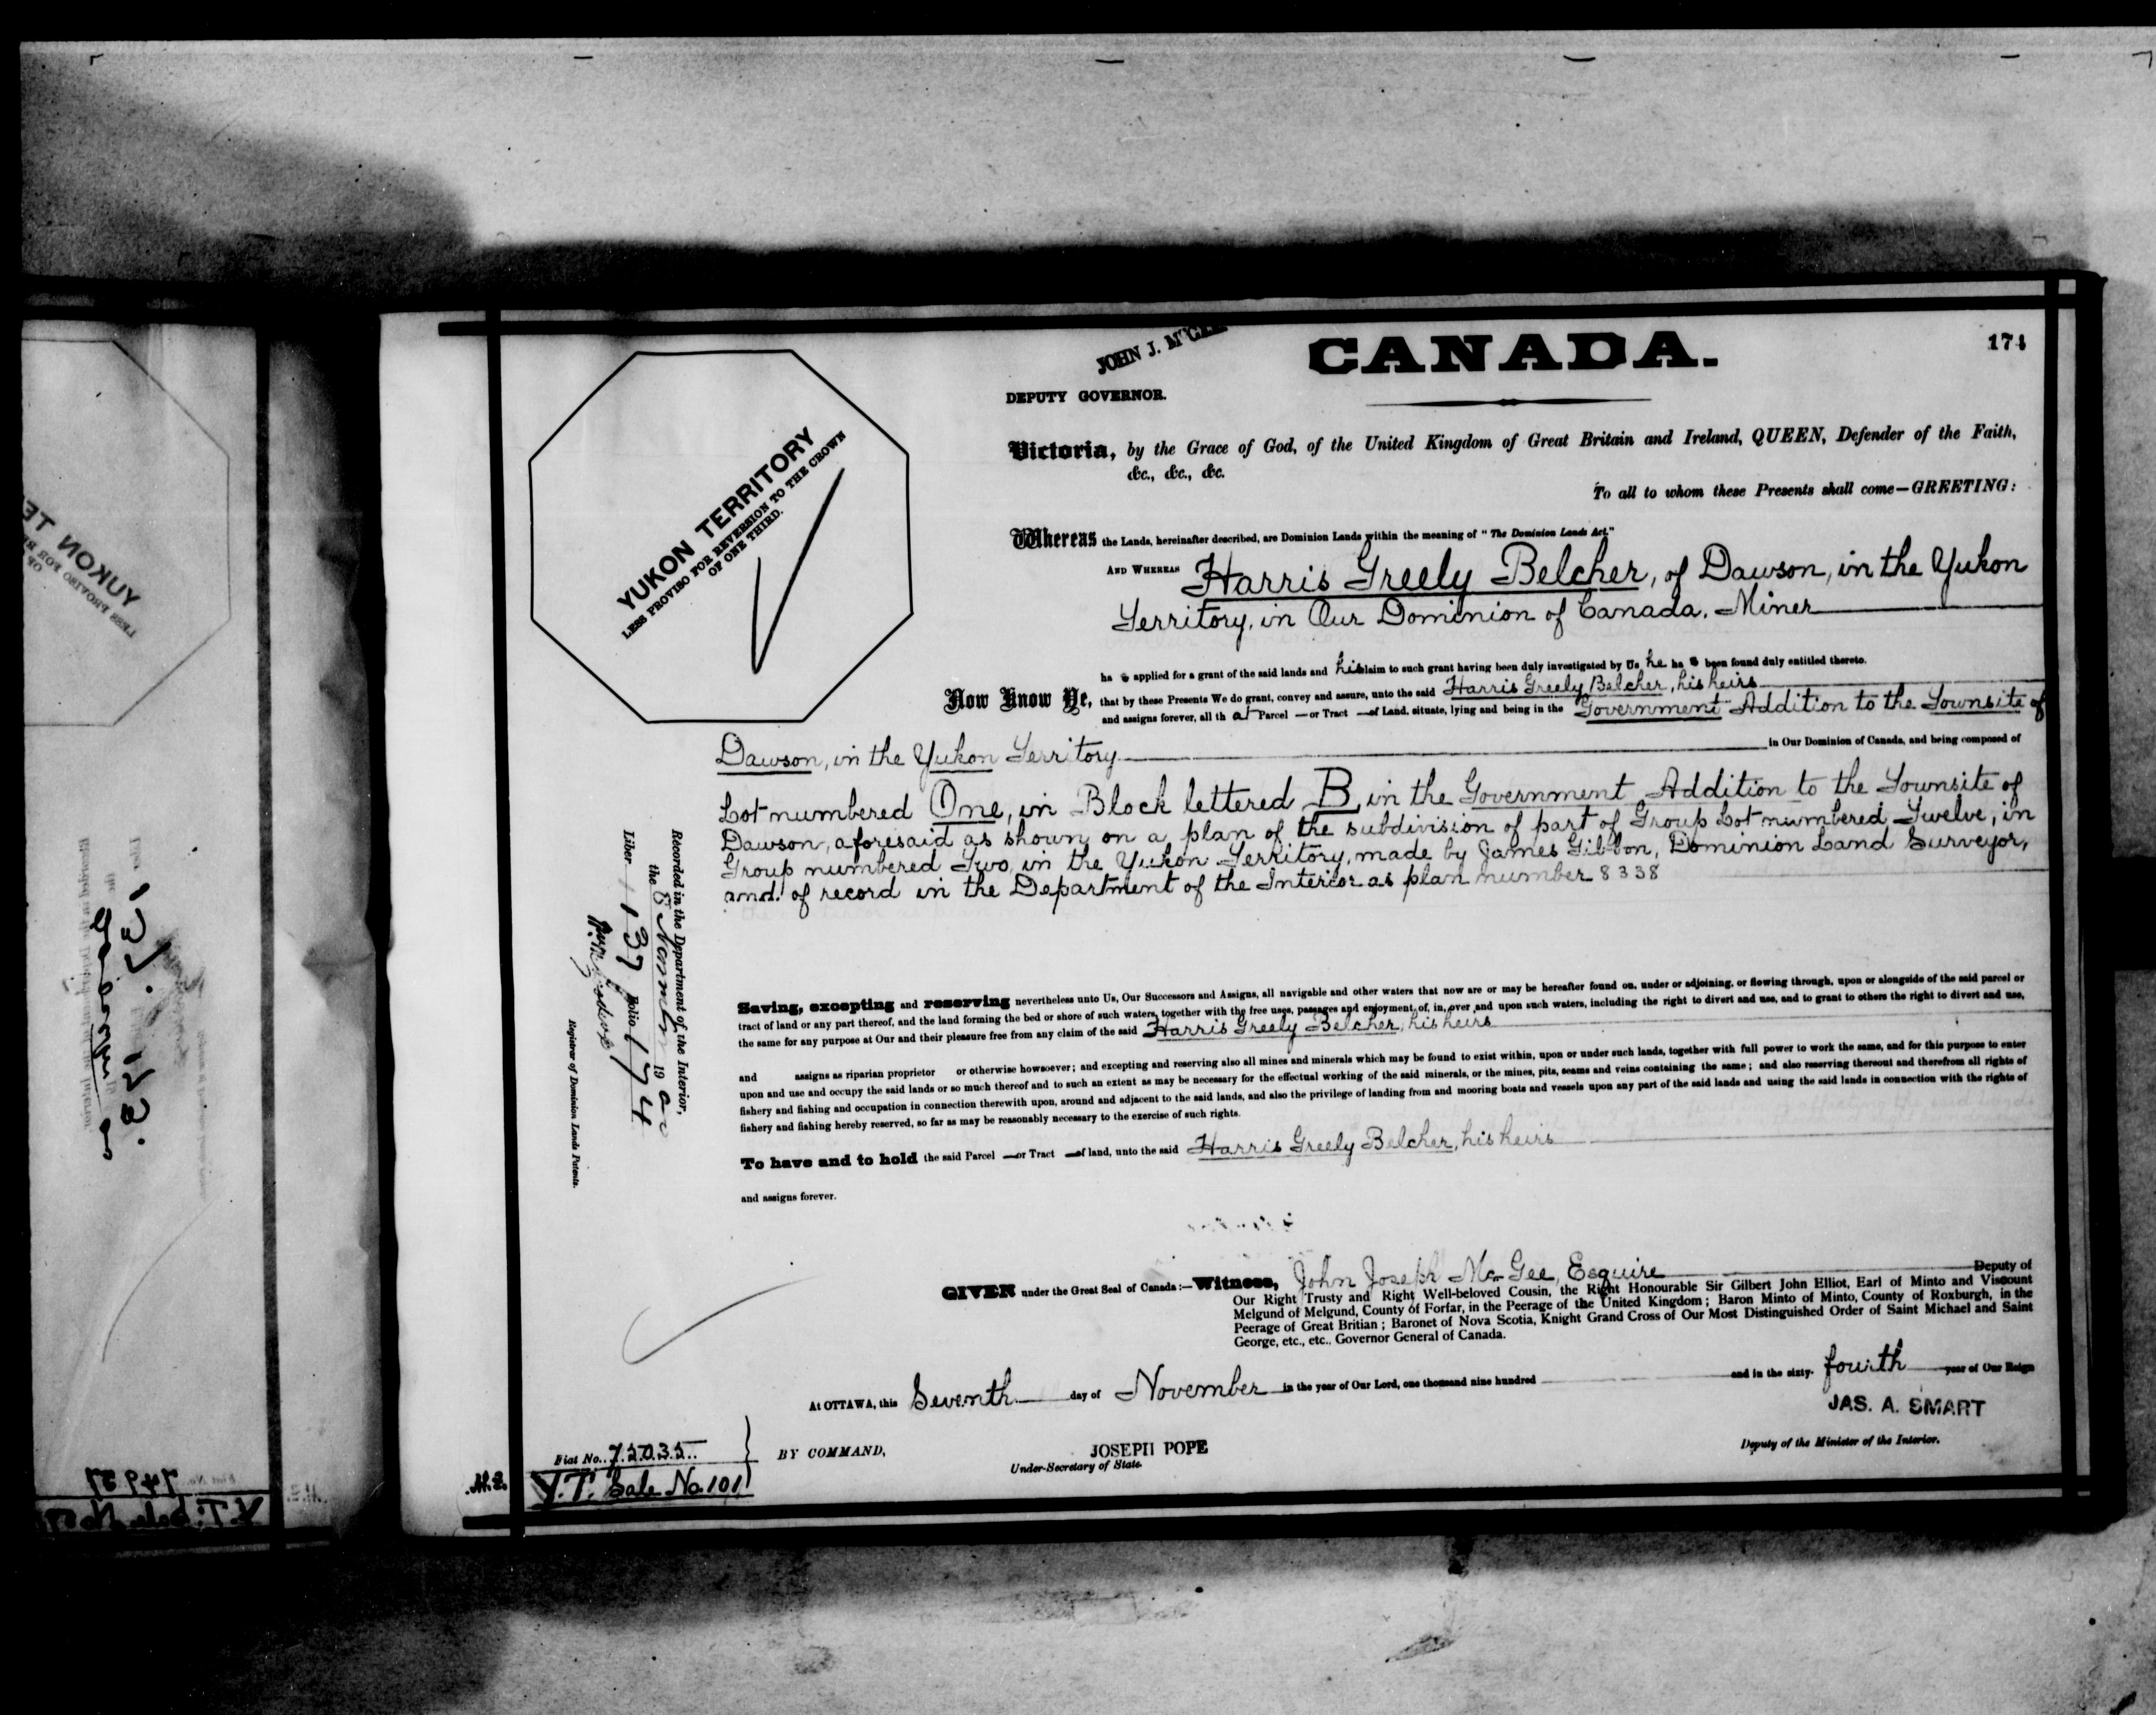 JOHN J. McGEE
CANADA.
174
DEPUTY GOVERNOR.
YUKON TERRITORY
LESS PROVISO FOR REVERSION TO THE CROWN
OF ONE THIRD.
Victoria, by the Grace of God, of the United Kingdom of Great Britain and Ireland, QUEEN, Defender of the Faith,
&c., &c., &c.
To all to whom these Presents shall come—GREETING:
Whereas the Lands, hereinafter described, are Dominion Lands within the meaning of "The Dominion Lands Act."
AND WHEREAS Harris Greely Belcher, of Dawson, in the Yukon
Territory, in Our Dominion of Canada, Miner
ha s applied for a grant of the said lands and his claim to such grant having been duly investigated by Us he ha s been found duly entitled thereto.
Now Know Ye, that by these Presents We do grant, convey and assure, unto the said Harris Greely Belcher, his heirs
and assigns forever, all th at Parcel — or Tract — of Land, situate, lying and being in the Government Addition to the Townsite of
Dawson, in the Yukon Territory in Our Dominion of Canada, and being composed of
Lot numbered One, in Block lettered B, in the Government Addition to the Townsite of
Dawson, aforesaid as shown on a plan of the subdivision of part of Group Lot numbered Twelve, in
Group numbered Two, in the Yukon Territory, made by James Gibbon, Dominion Land Surveyor,
and of record in the Department of the Interior as plan number 8338
Recorded in the Department of the Interior,
the 8 November 1900
Liber 137 Folio 174
Registrar of Dominion Lands Patents.
Saving, excepting and reserving nevertheless unto Us, Our Successors and Assigns, all navigable and other waters that now are or may be hereafter found on, under or adjoining, or flowing through, upon or alongside of the said parcel or
tract of land or any part thereof, and the land forming the bed or shore of such waters, together with the free uses, passages and enjoyment, of, in, over and upon such waters, including the right to divert and use, and to grant to others the right to divert and use,
the same for any purpose at Our and their pleasure free from any claim of the said Harris Greely Belcher, his heirs
and assigns as riparian proprietor or otherwise howsoever; and excepting and reserving also all mines and minerals which may be found to exist within, upon or under such lands, together with full power to work the same, and for this purpose to enter
upon and use and occupy the said lands or so much thereof and to such an extent as may be necessary for the effectual working of the said minerals, or the mines, pits, seams and veins containing the same; and also reserving thereout and therefrom all rights of
fishery and fishing and occupation in connection therewith upon, around and adjacent to the said lands, and also the privilege of landing from and mooring boats and vessels upon any part of the said lands and using the said lands in connection with the rights of
fishery and fishing hereby reserved, so far as may be reasonably necessary to the exercise of such rights.
To have and to hold the said Parcel — or Tract — of land, unto the said Harris Greely Belcher, his heirs
and assigns forever.
GIVEN under the Great Seal of Canada:—Witness, John Joseph McGee, Esquire Deputy of
Our Right Trusty and Right Well-beloved Cousin, the Right Honourable Sir Gilbert John Elliot, Earl of Minto and Viscount
Melgund of Melgund, County of Forfar, in the Peerage of the United Kingdom; Baron Minto of Minto, County of Roxburgh, in the
Peerage of Great Britian; Baronet of Nova Scotia, Knight Grand Cross of Our Most Distinguished Order of Saint Michael and Saint
George, etc., etc., Governor General of Canada.
At OTTAWA, this Seventh day of November in the year of Our Lord, one thousand nine hundred and in the sixty-fourth year of Our Reign
JAS. A. SMART
Deputy of the Minister of the Interior.
BY COMMAND,
JOSEPH POPE
Under-Secretary of State.
Fiat No. 75035
Y.T. Sale No. 101